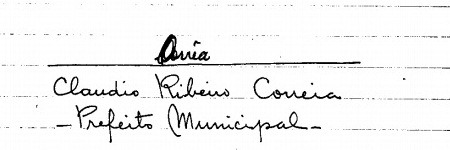 Corrêa
Claudio Ribeiro Correia
- Prefeito Municipal -